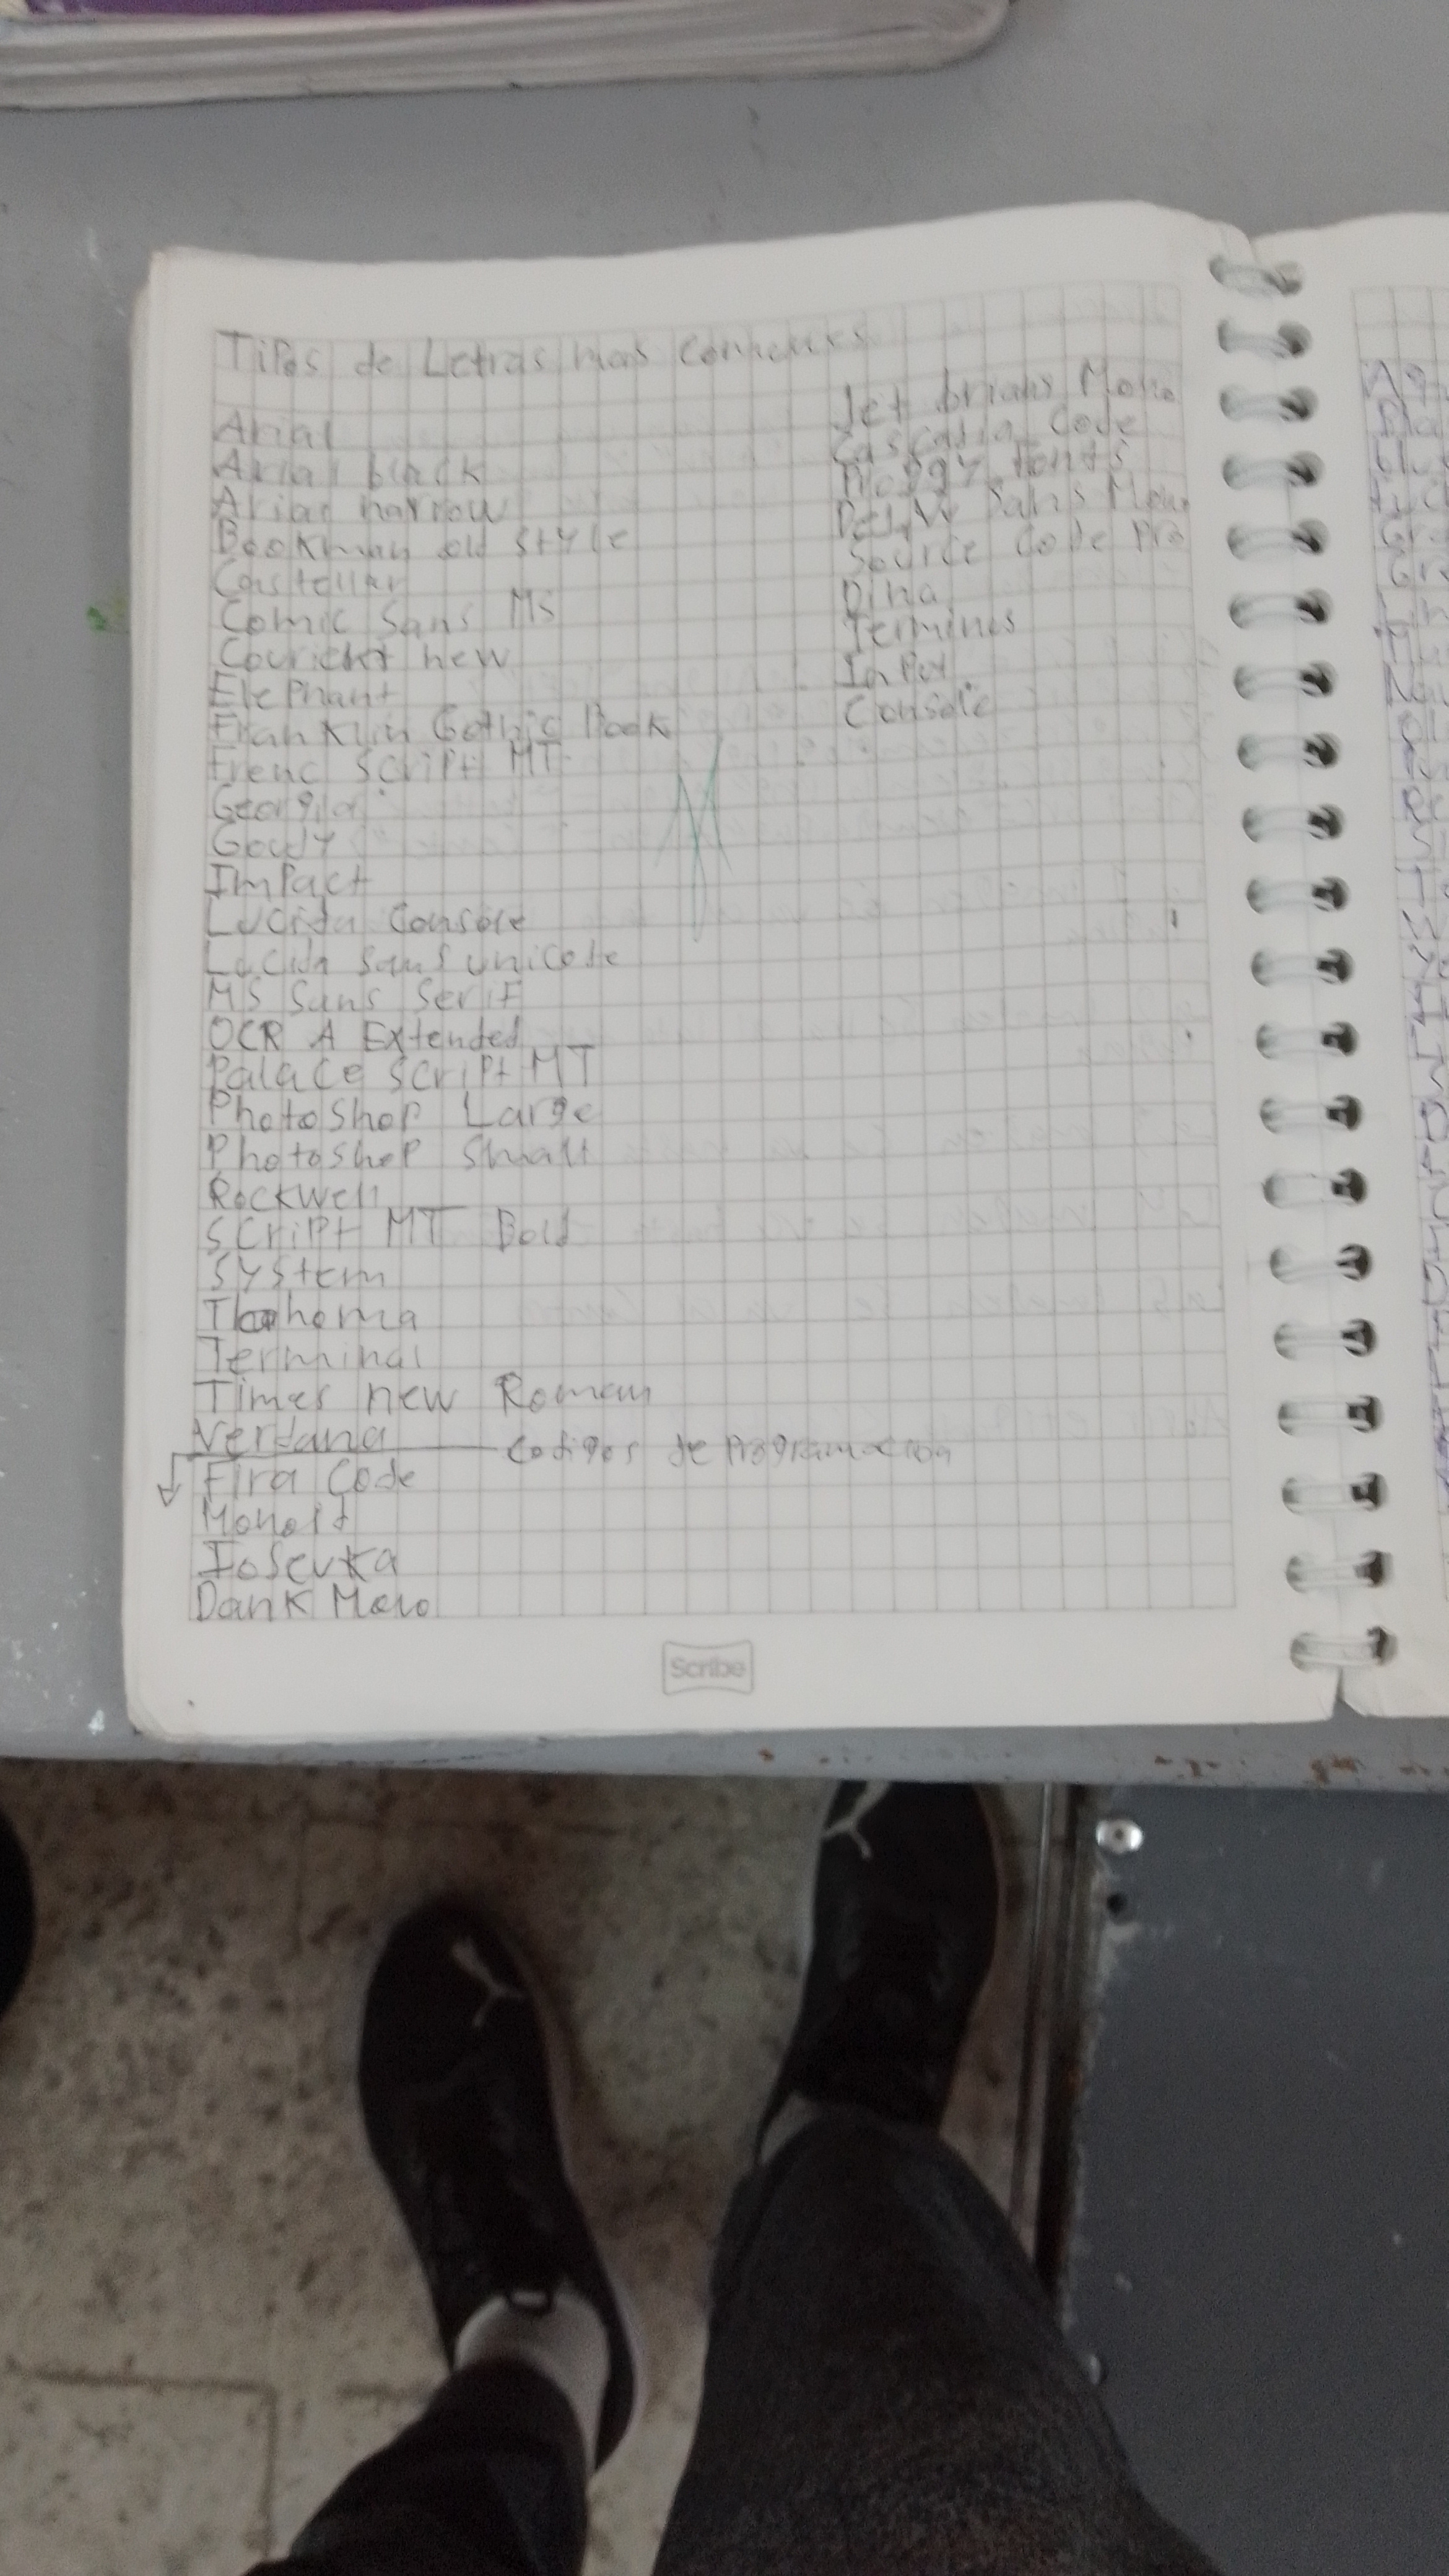 Tipos de Letras mas comunes
Arial
Arial black
Arial narrow
Bookman old style
Castellar
Comic Sans MS
new
Elephant
Franklin Gothic Book
Frenc Script MT
Georgia
Goudy
Impact
Lucida Console
Lucida Sans unicode
MS Sans Serif
OCR A Extended
Palace Script MT
Photoshop Large
Photoshop Small
Rockwell
Script MT Bold
System
Tahoma
Terminal
Times new Roman
Verdana
codigos de Programacion
Fira Code
Monoid
Iosevka
Dank Mono
Jet brians Mono
Cascadia Code
Proggy fonts
Deja Vu Sans Mono
Source Code Pro
Dina
Termines
Input
Console
Scribe